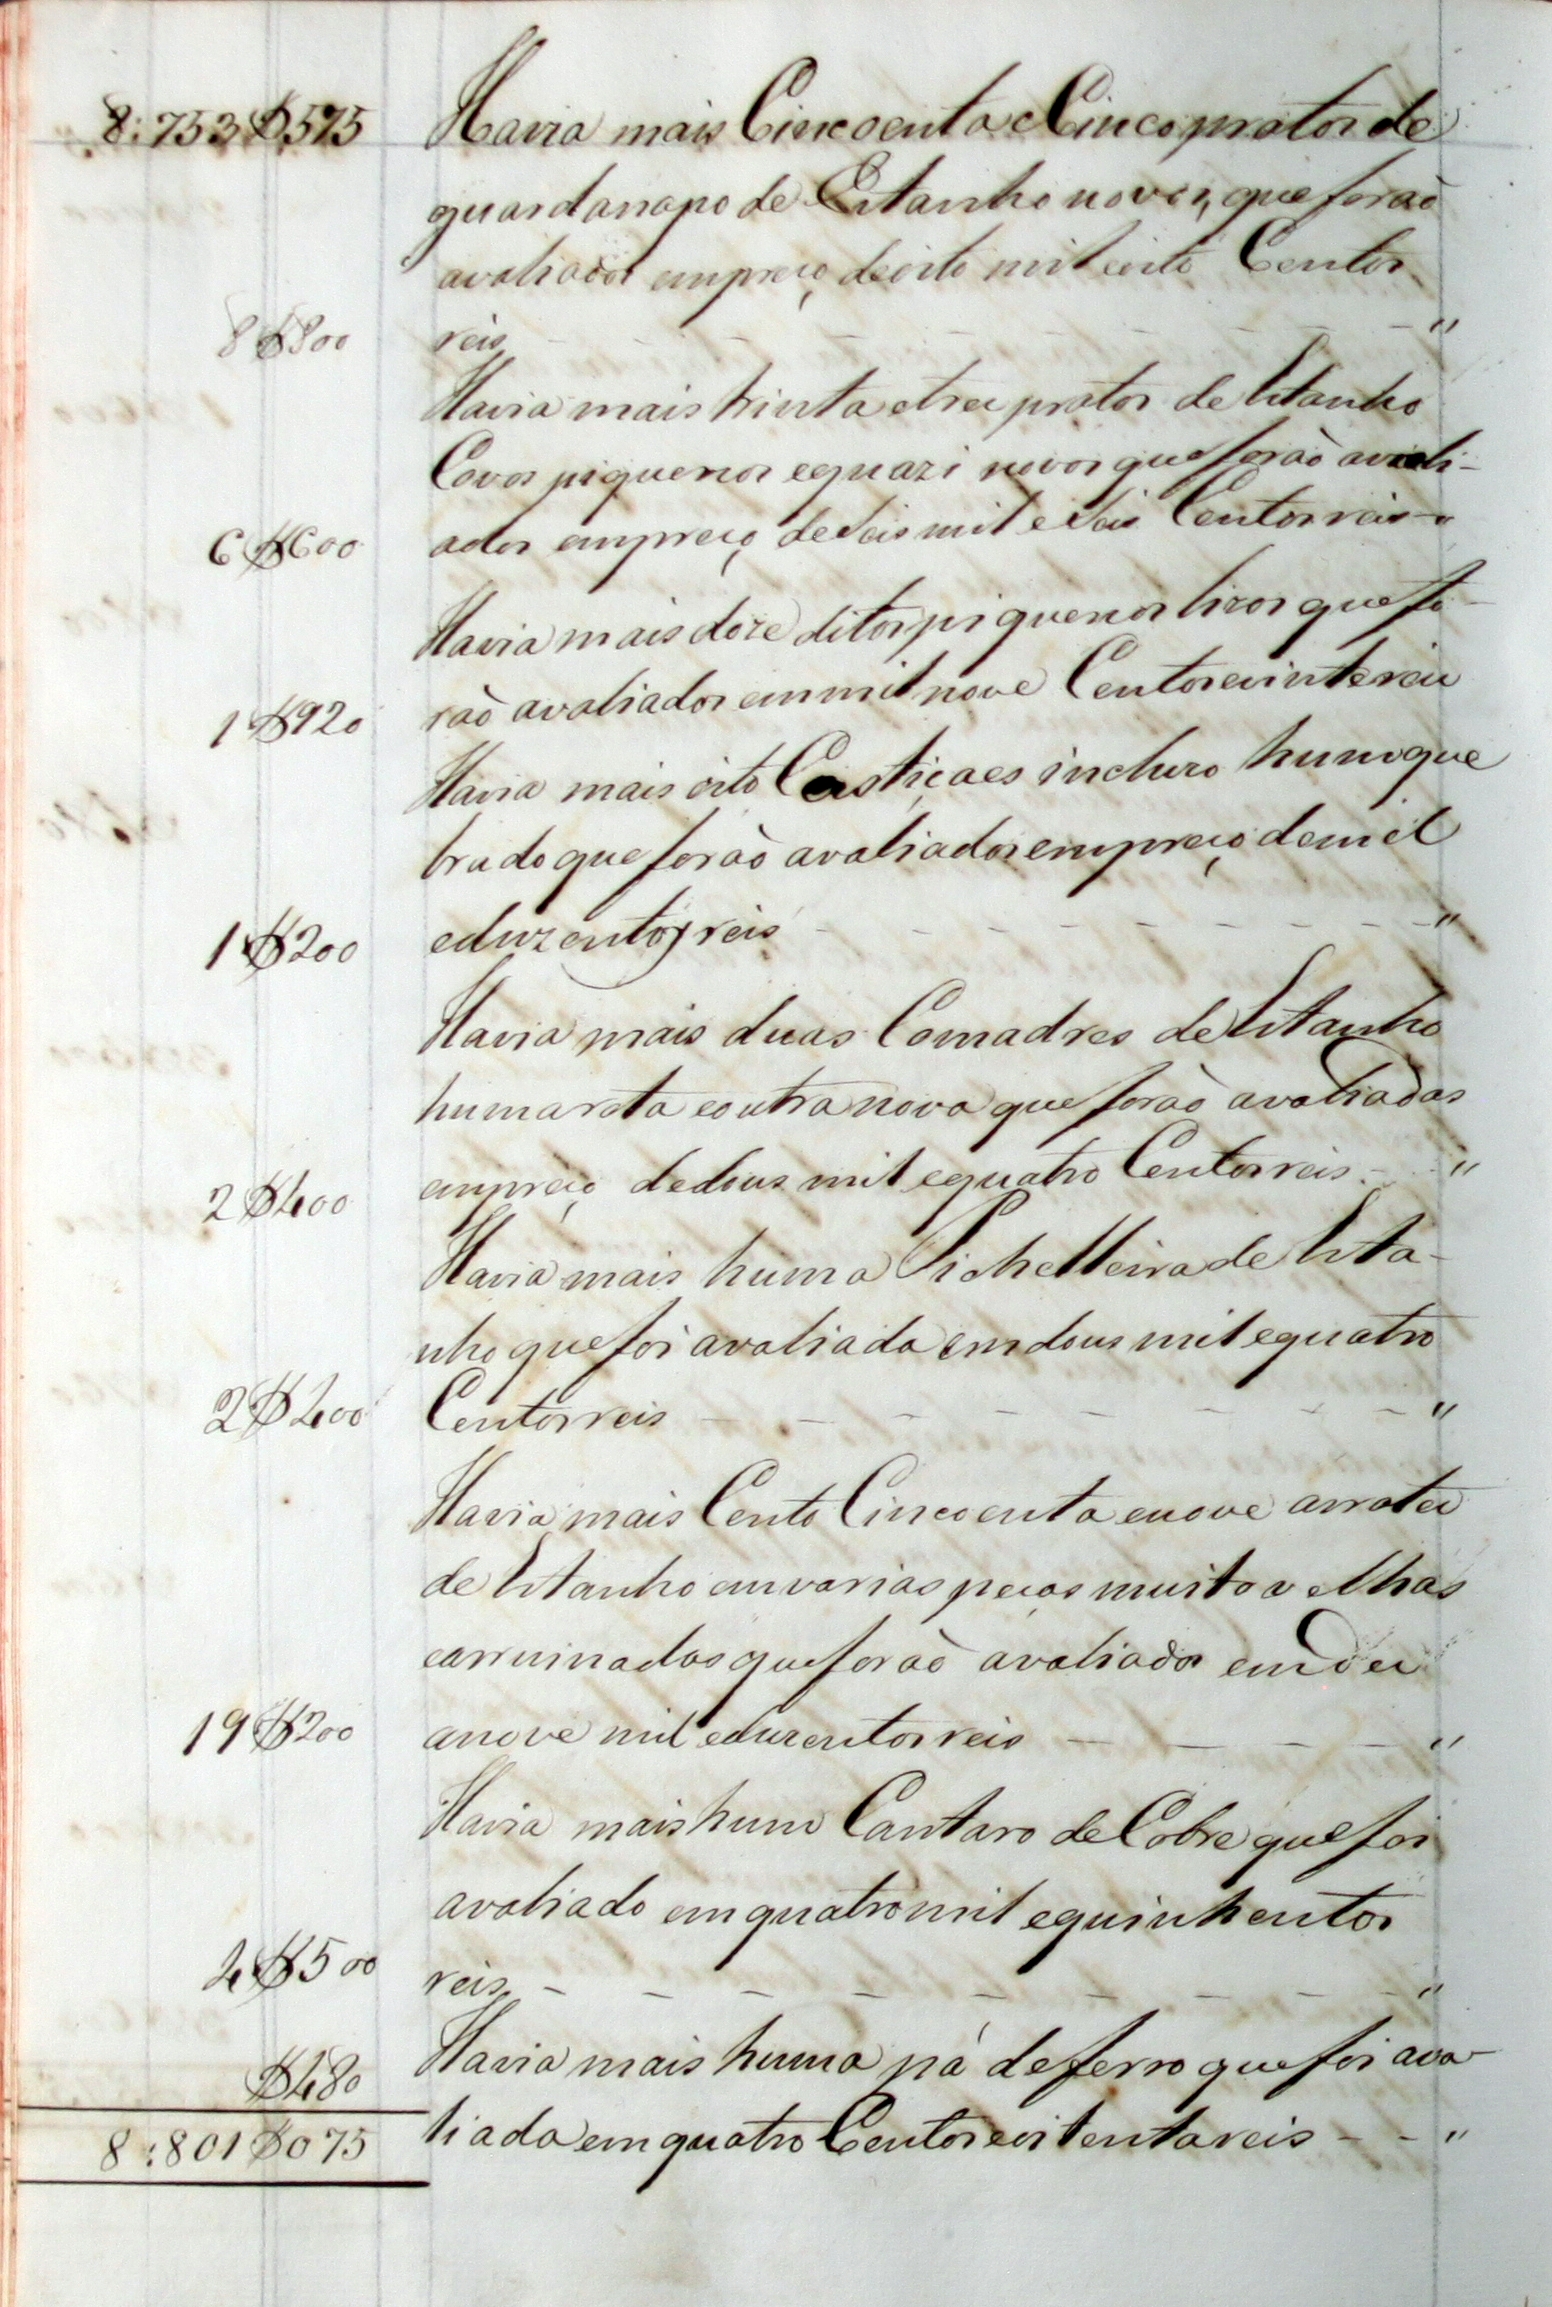 8:753$575 Havia mais Cincoenta e Cinco pratos de
guardanapo de Estanho novos, que foraò
avaliados em preço de oito mil e oito Centos
8$800 reis - - - - - - - - "
Havia mais trinta e tres pratos de Estanho
Covos piquenos e quazi novos que foraò avali-
6$600 ados em preço de Seis mil e Seis Centos reis -"
Havia mais doze ditos piquenos lizos que fo-
1$920 raò avaliados em mil nove Centos e vinte reis
Havia mais oito Castiçaes incluzo hum que
brado que foraò avaliados em preço de mil
1$200 e duzentos reis - - - - - - - "
Havia mais duas Comadres de Estanho
huma rota e outra nova que foraò avaliadas
2$400 em preço de dous mil e quatro Centos reis - "
Havia mais huma Pichelleira de Esta-
nho que foi avaliada em dous mil e quatro
2$400 Centos reis - - - - - - - - "
Havia mais Cento Cincoenta e nove arrates
de Estanho em varias peças muito velhas
e arruinadas que foraò avaliados em dez
19$200 anove mil e duzentos reis - - - - "
Havia mais hum Cantaro de Cobre que foi
avaliado em quatro mil e quinhentos
4$500 reis - - - - - - - - - "
Havia mais huma pá de ferro que foi ava-
$480
8:801$075 liada em quatro Centos e oitenta reis - - "